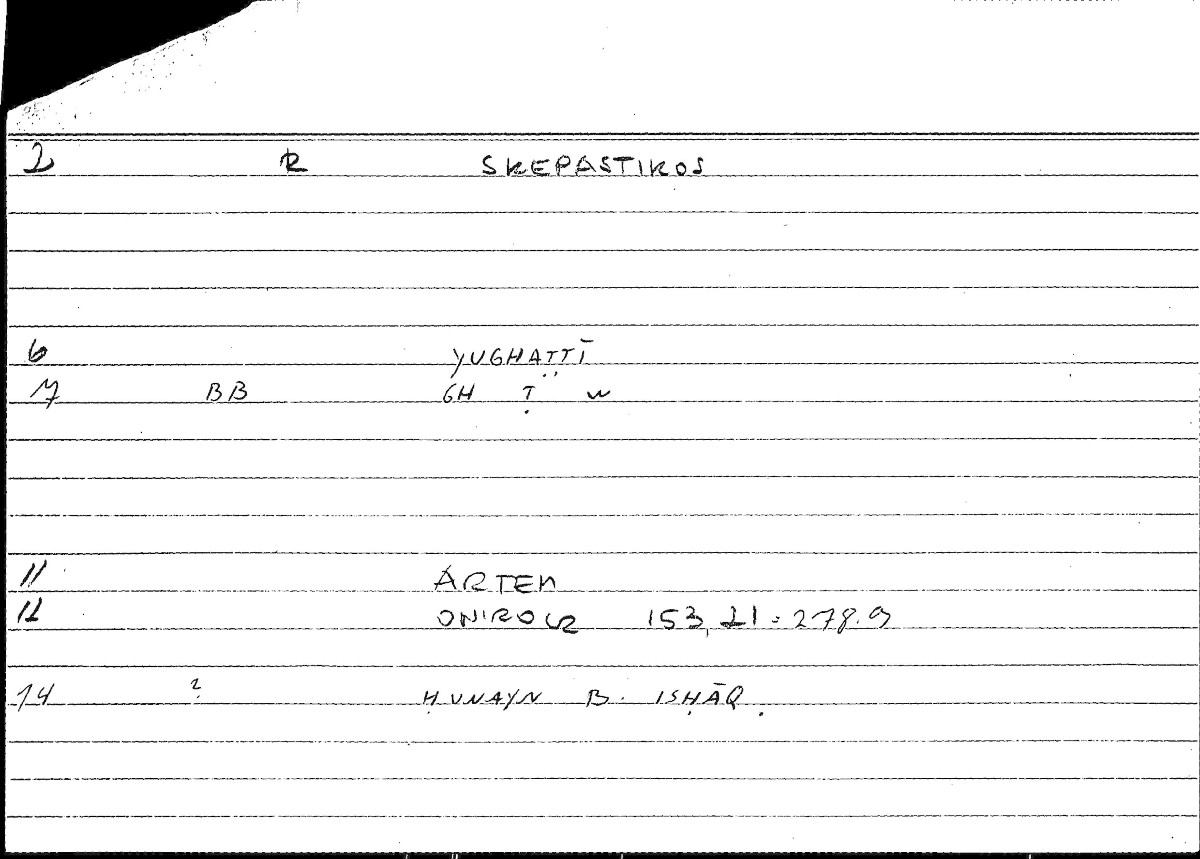 2 R SKEPASTIKOS
6 YUGHAṬṬĪ
7 BB GH Ṭ W
11 ARTEM
12 ONIROCR 153,21 = 278.9
14 ? ḤUNAYN B. ISḤĀQ.